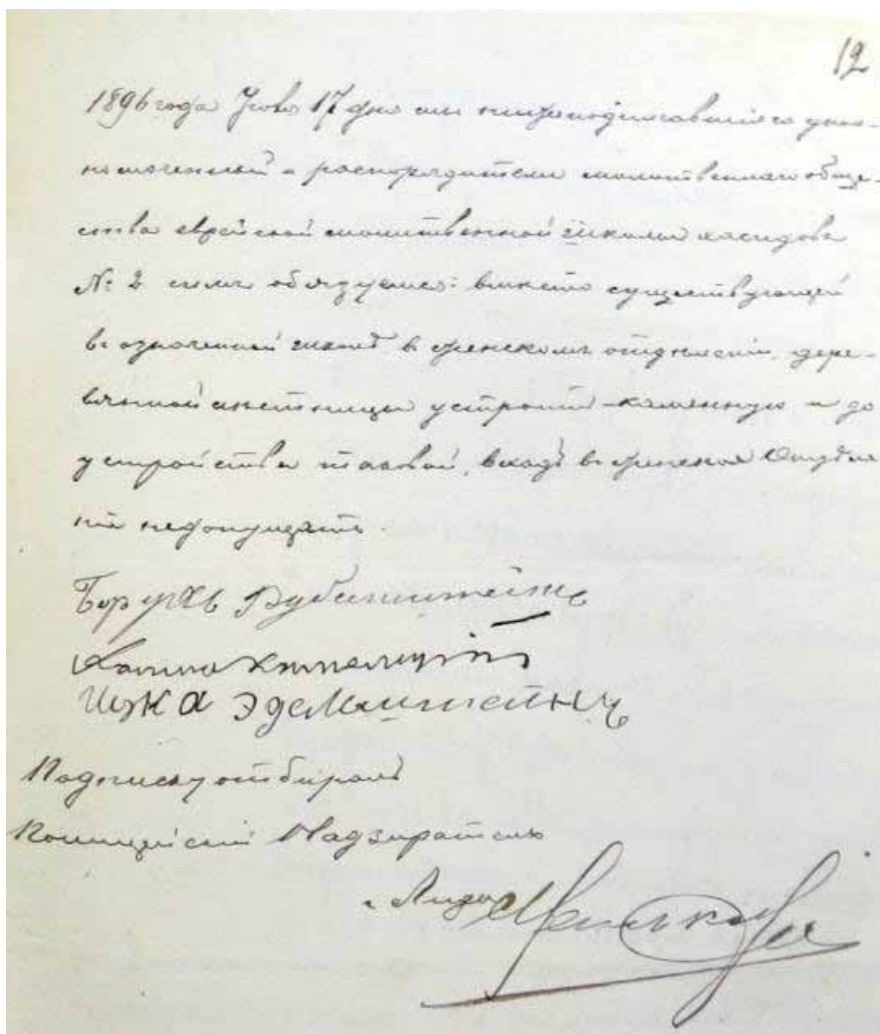 12
1896 года Июля 17 дня мы нижеподписавшиеся упол-
номоченный и распорядители молитвеннаго обще-
ства еврейской молитвенной школы хасидовъ
№ 2 симъ обязуемся: вместо существующей
въ означенной школѣ въ женскомъ отдѣленіи, дере-
вянной лестницы устроить каменную и до
устройства таковой, входъ въ женское Отдѣле
ніе недопущать.
Борухъ Рубинштейнъ
Ицка Эдельштейнъ
Подписку отбиралъ
Полицейскій Надзиратель
г. Лида